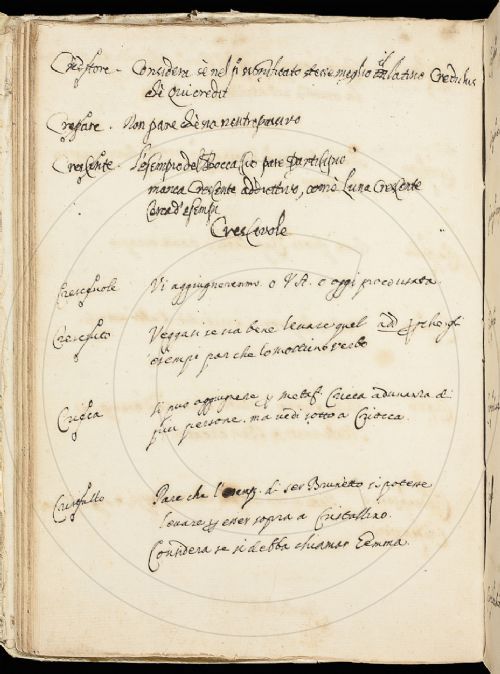 Creditore - Considera se nel p.º significato stesse meglio il latino Creditus
di Qui credit
Crepare. Non pare che sia neutro passivo
Crescente. L'esempio del Boccaccio pare Participio
manca Crescente addiettivo, come Luna Crescente
Cerca d'esempi
Crescevole
Crescevole Vi aggiugneremmo o V.A. o oggi poco usata.
Cresciuto Veggasi se sia bene levare quel add perche gli
esempi par che lo mostrino verbo
Cricca Si può aggiugnere metaf. Cricca adunanza di
più persone. ma vedi sotto a Criocca.
Cristallo Pare che l'esemp. di ser Brunetto si potesse
levare esser sopra a Cristallino.
Considera se si debba chiamar Gemma.